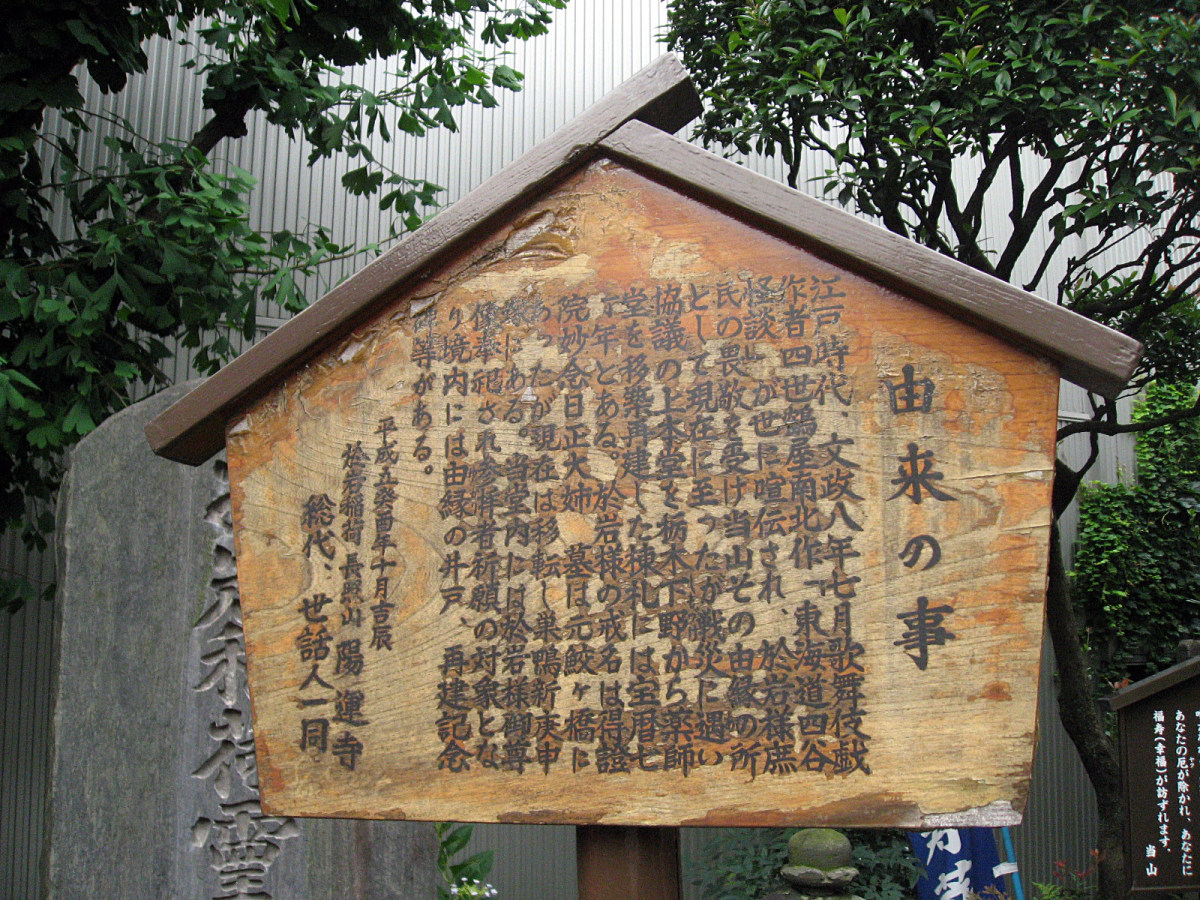 由来の事
江戸時代、文政八年七月歌舞伎戯
作者四世鶴屋南北作「東海道四谷
怪談」が世に喧伝され、於岩様庶
民の畏敬を受け当山その由縁の所
として現在に至ったが戦災に遇い
協議の上本堂を栃木下野から薬師
堂を移築再建した棟札には宝暦七
年とある。於岩様の戒名は得證
院妙念日正大姉 墓は元鮫ヶ橋に
あったが現在は移転し巣鴨新庚申
塚にある。当堂内には於岩様御尊
像奉祀され参拝者祈願の対象とな
り境内には由縁の井戸、再建記念
碑等がある。
平成五癸酉年十月吉辰
於岩稲荷 長照山 陽運寺
総代、世話人一同
あなたの厄が除かれ、あなたに
福寿(幸福)が訪ずれます。
当山